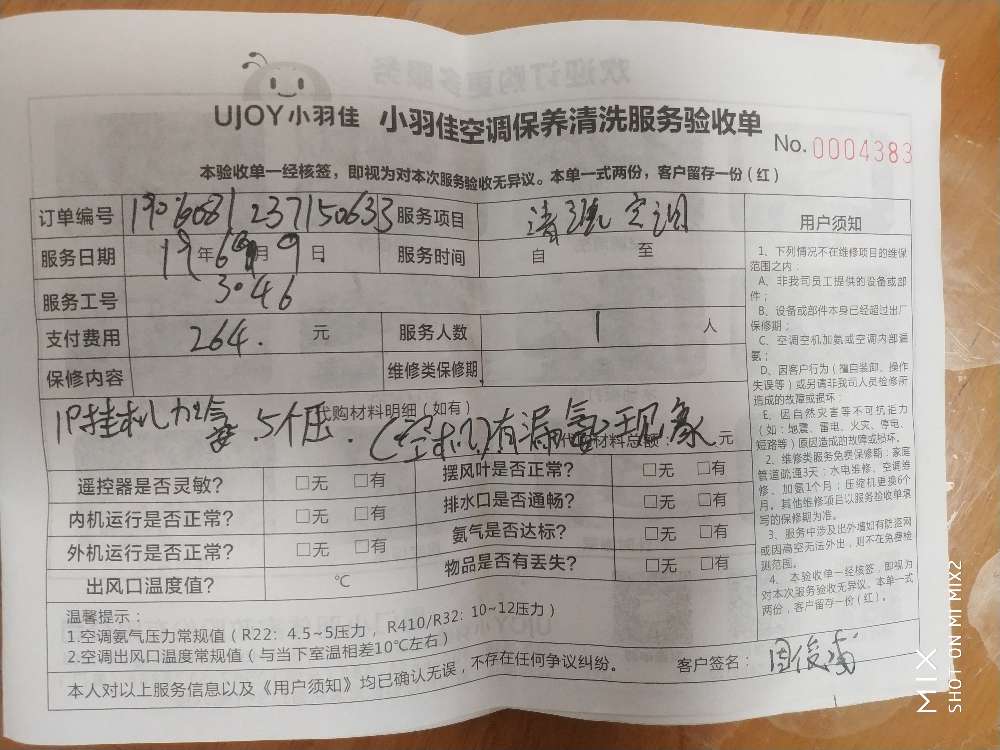 UJOY小羽佳 小羽佳空调保养清洗服务验收单
No. 0004383
本验收单一经核签，即视为对本次服务验收无异议。本单一式两份，客户留存一份（红）
订单编号 1906081237150633 服务项目 清洗空调
服务日期 19年6月9日 服务时间 自 至
服务工号 3046
支付费用 264. 元 服务人数 1 人
保修内容 维修类保修期
代购材料明细（如有）
1P挂机加氟.5个压.(空机)有漏氟现象
代购材料总额： 元
遥控器是否灵敏？ □无 □有 摆风叶是否正常？ □无 □有
内机运行是否正常？ □无 □有 排水口是否通畅？ □无 □有
外机运行是否正常？ □无 □有 氨气是否达标？ □无 □有
出风口温度值？ ℃ 物品是否有丢失？ □无 □有
温馨提示：
1.空调氨气压力常规值（R22：4.5~5压力， R410/R32：10~12压力）
2.空调出风口温度常规值（与当下室温相差10℃左右）
本人对以上服务信息以及《用户须知》均已确认无误，不存在任何争议纠纷。 客户签名：
用户须知
1、下列情况不在维修项目的维保
范围之内：
A、非我司员工提供的设备或部
件；
B、设备或部件本身已经超过出厂
保修期；
C、空调空机加氨或空调内部漏
氨；
D、因客户行为（擅自装卸、操作
失误等）或另请非我司人员检修所
造成的故障或损坏；
E、因自然灾害等不可抗拒力
（如：地震、雷电、火灾、停电、
短路等）原因造成的故障或损坏。
2、维修类服务免费保修期：家庭
管道疏通3天；水电维修、空调维
修、加氨1个月；压缩机更换6个
月。其他维修项目以服务验收单填
写的保修期为准。
3、服务中涉及出外墙如有防盗网
或因高空无法外出，则不在免费检
测范围。
4、本验收单一经核签，即视为
对本次服务验收无异议。本单一式
两份，客户留存一份（红）。
MIX
SHOT ON MI MIX2